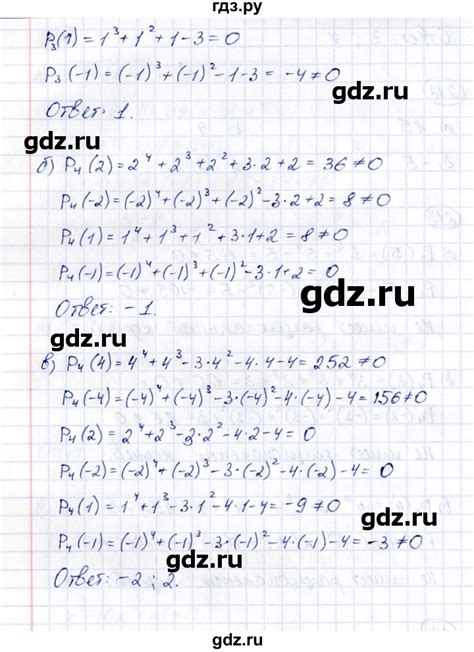 гдз.ру
P₃(1) = 1³ + 1² + 1 - 3 = 0
P₃(-1) = (-1)³ + (-1)² - 1 - 3 = -4 ≠ 0
Ответ: 1.
gdz.ru
gdz.ru
б) P₄(2) = 2⁴ + 2³ + 2² + 3·2 + 2 = 36 ≠ 0
P₄(-2) = (-2)⁴ + (-2)³ + (-2)² - 3·2 + 2 = 8 ≠ 0
P₄(1) = 1⁴ + 1³ + 1² + 3·1 + 2 = 8 ≠ 0
P₄(-1) = (-1)⁴ + (-1)³ + (-1)² - 3·1 + 2 = 0
gdz.ru
Ответ: -1.
в) P₄(4) = 4⁴ + 4³ - 3·4² - 4·4 - 4 = 252 ≠ 0
P₄(-4) = (-4)⁴ + (-4)³ - 3·(-4)² - 4·(-4) - 4 = 156 ≠ 0
P₄(2) = 2⁴ + 2³ - 3·2² - 4·2 - 4 = 0
P₄(-2) = (-2)⁴ + (-2)³ - 3·(-2)² - 4·(-2) - 4 = 0
P₄(1) = 1⁴ + 1³ - 3·1² - 4·1 - 4 = -9 ≠ 0
gdz.ru
gdz.ru
P₄(-1) = (-1)⁴ + (-1)³ - 3·(-1)² - 4·(-1) - 4 = -3 ≠ 0
Ответ: -2; 2.
gdz.ru